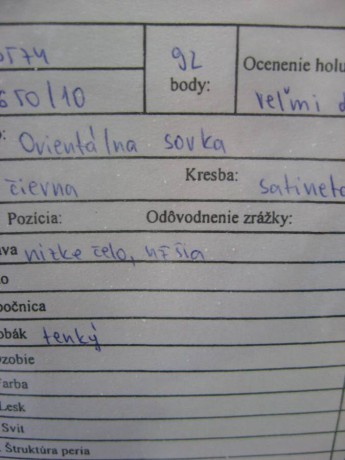 92
body:
Ocenenie holu
650/10
veľmi d
Orientálna sovka
čierna
Kresba:
satineto
Pozícia:
Odôvodnenie zrážky:
ava nízke čelo, užšia
očnica
obák tenký
zobie
arba
Lesk
Svit
Štruktúra peria